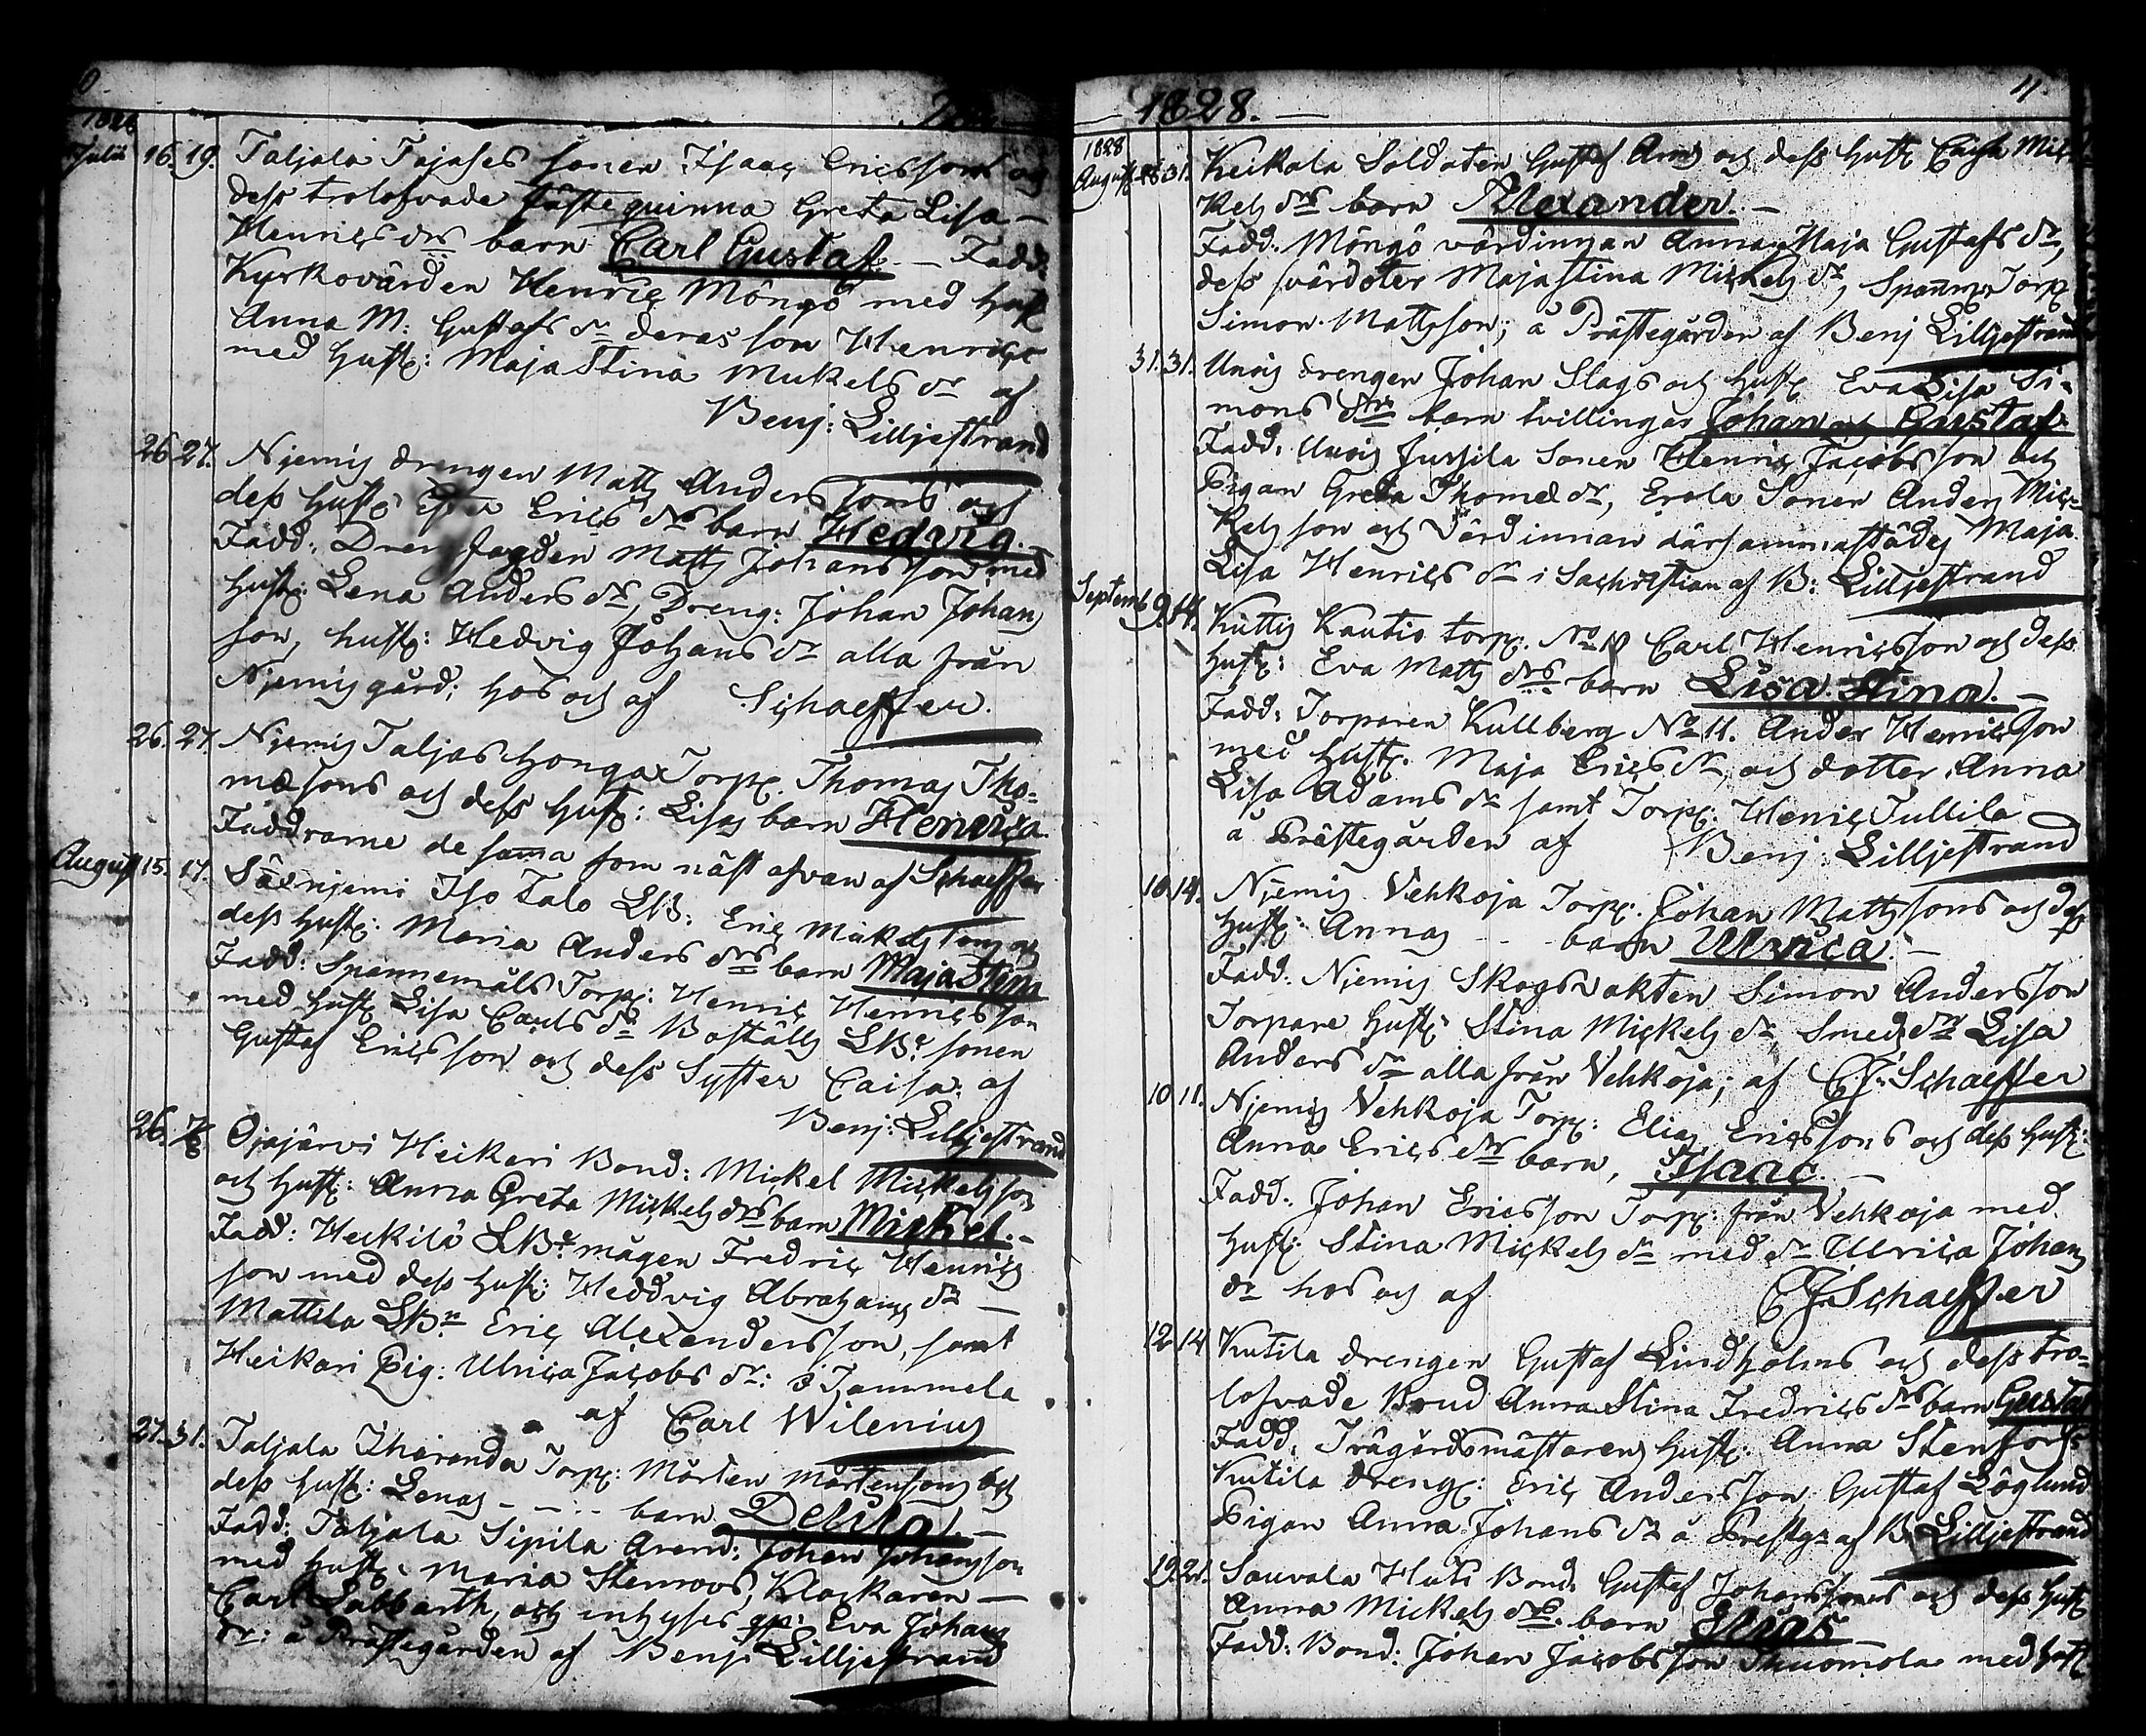 1828
Julii 16. 19. Taljala Tajases sonen Isaac Ericssons och
dess trolofvade fästeqvinna Greta Lisa —
Henrics drs barn Carl Gustaf. — Fadd:
Kyrkovärden Henric Möngö med hust
Anna M: Gustafs dr deras son Henric
med hust: Maja Stina Mickels dr af
Benj: Lilljestrand
26. 27. Njemis drengen Matts Anders sons och
dess hust: Ester Erics drs barn Hedvig.
Fadd: Matts Johansson med
hust: Lena Anders dr, Dreng: Johan Johans
son, hust: Hedvig Johans dr alla från
Njemis gård: hos och af Schaeffer.
26. 27. Njemis Taljas honga Torp: Thomas Tho-
mæsons och dess hust: Lisas barn Henrica.
Faddrarne de sama som näst ofvan af Schaeffer
August 15. 17. Säxnjemi Iso Talo LB: Eric Mickels sons och
dess hust: Maria Anders drs barn Maja Stina
Fadd: Spannemäls Torp: Henric Henricsson
med hust Lisa Carls dr Boställs LB: sonen
Gustaf Ericsson och dess Syster Caisa: af
Benj: Lilljestrand
26. Ojajärvi Heikari Bond: Mickel Mickelsson
och hust: Anna Greta Mickels drs barn Mickel. —
Fadd: Heikilä LB: mågen Fredric Henrics
son med dess hust: Heddvig Abrahams dr —
Mattila LB: Eric Alexandersson, samt
Heikari Pig: Ulrica Jacobs dr: i Tammela
af Carl Wilenius
27. 31. Taljala Iharanda Torp: Mårten Mårtensons och
dess hust: Lenas - - - barn —
Fadd: Taljala Sipila Arend: Johan Johansson
med hust: Maria Stenroos, Klockaren —
Carl Sabbarth, och inhyses Eva Johans
dr: å Prästegården af Benj: Lilljestrand
1828. — 11
1828
August 31. Keikala Soldaten Gustaf och dess hust Caisa Mic-
kels drs barn Alexander. —
Fadd: Möngö värdinnan Anna Maja Gustafs dr,
dess svärdoter Maja Stina Mickels dr, Torp
Simon Mattsson; å Prästegården af Benj Lilljestrand
31. 31. drengen Johan Slags och hust Eva Lisa Si-
mons drs barn tvillingar Johan och Gustaf.
Fadd: Jussila Sonen Henric Jacobsson och
Pigan Greta Thomæ dr, Erola Sonen Anders Mic-
kels son och Värdinnan därsammastädes Maja
Lisa Henrics dr i Sachristian af B: Lilljestrand
Septemb 9. 14. Kuttis Kautio torp: Carl Henricsson och dess
hust: Eva Matts drs barn Lisa Stina. —
Fadd: Torparen Kullberg No 11. Ander Henricsson
med hust. Maja Erics dr, och dotter Anna
Lisa Adams dr samt Torp: Henric Tullila
å Prästegården af Benj: Lilljestrand
10. 14. Njemis Vehkoja Torp: Johan Mattssons och dess
hust: Annas - - - barn Ulrica. —
Fadd: Njemis Skogsvakten Simon Andersson
Torpare hust: Stina Mickels dr, Smeds dr Lisa
Anders dr alla från Vehkoja; af C J: Schaeffer
10. 11. Njemis Vehkoja Torp: Elias Ericssons och dess hust:
Anna Erics drs barn, Isaac. —
Fadd: Johan Ericsson Torp: från Vehkoja med
hust: Stina Mickels dr med dr Ulrica Johans
dr hos och af C J Schaeffer
12. 14 Kutila drengen Gustaf Lindholms och dess tro-
lofvade Brud Anna Stina Fredrics drs barn Gustaf
Fadd: Trägårdsmästarens hust: Anna Stenfors
Kutila dreng: Eric Andersson Gustaf Löglund
Pigan Anna Johans dr å Prestg: af B: Lilljestrand
19. 21. Sauvala Huti Bond: Gustaf Johanssons och dess hust
Anna Mickels drs. barn Elias —
Fadd: Bond: Johan Jacobsson med hust